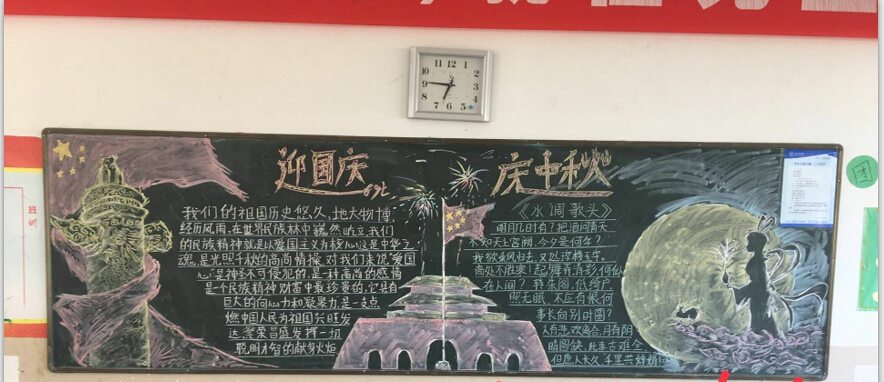 12
11
1
10
2
9
3
8
4
7
6
5
迎国庆
庆中秋
我们的祖国历史悠久,地大物博,
经历风雨,在世界民族林中巍然屹立,我们
的民族精神就是以爱国主义为核心,这是中华之
魂,是光照千秋的高尚情操,对我们来说"爱国
心"是神圣不可侵犯的,是一种高尚的感情
是个民族精神财富中最珍贵的,它具有
巨大的向心力和凝聚力,是一支点
燃中国人民为祖国兴旺发
达,繁荣昌盛发挥一切
聪明才智的献梦火炬
《水调歌头》
明月几时有?把酒问青天
不知天上宫阙,今夕是何年?
我欲乘风归去,又恐琼楼玉宇,
高处不胜寒!起舞弄清影,何似
在人间? 转朱阁,低绮户,
照无眠,不应有恨,何
事长向别时圆?
人有悲欢离合,月有阴
晴圆缺,此事古难全
但愿人长久,千里共婵娟
团
班